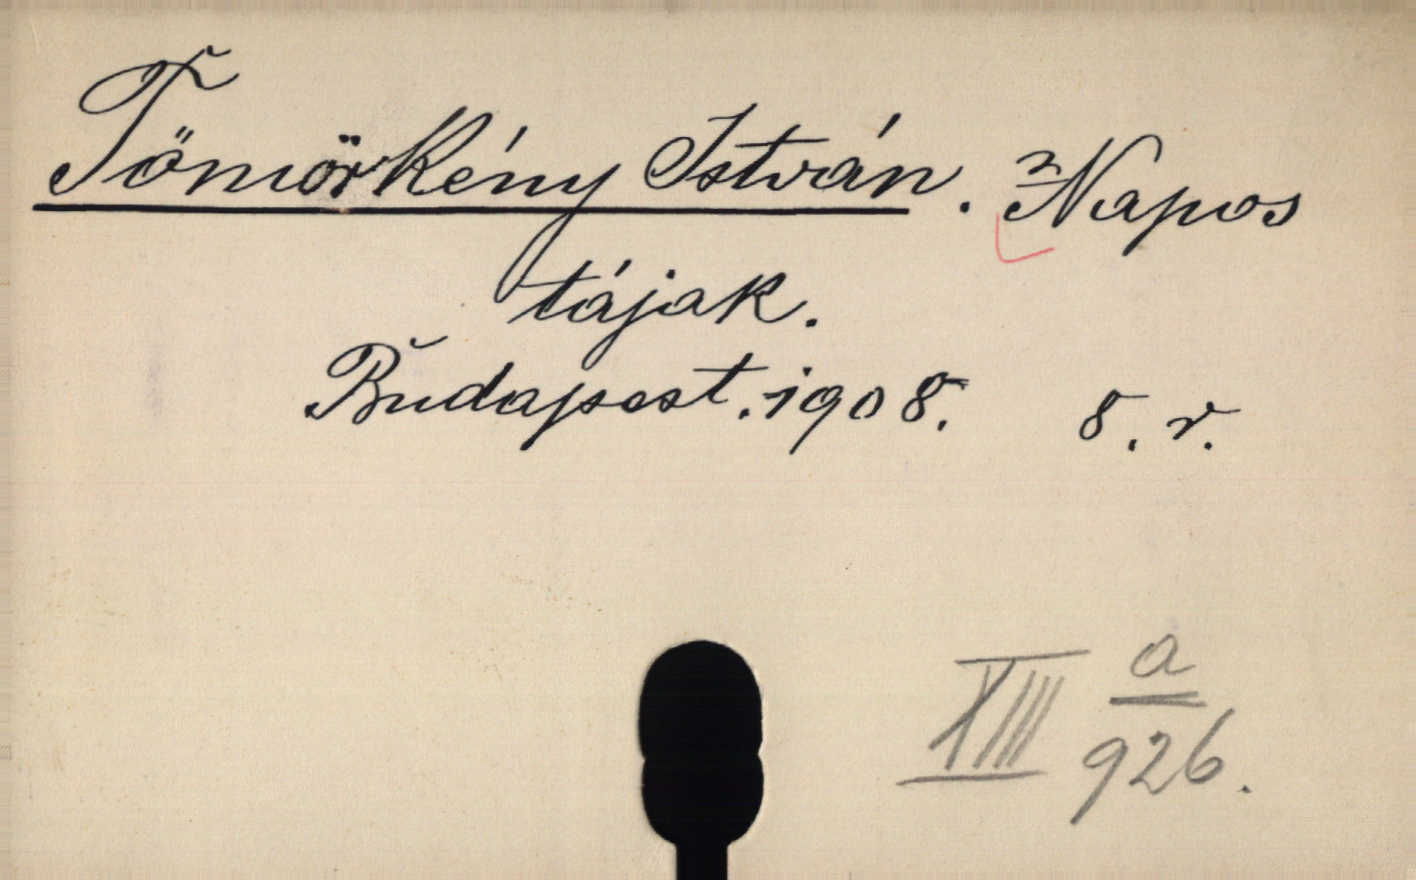 Tömörkény István. Napos
tájak.
Budapest. 1908. 8. r.
XIII a
926.